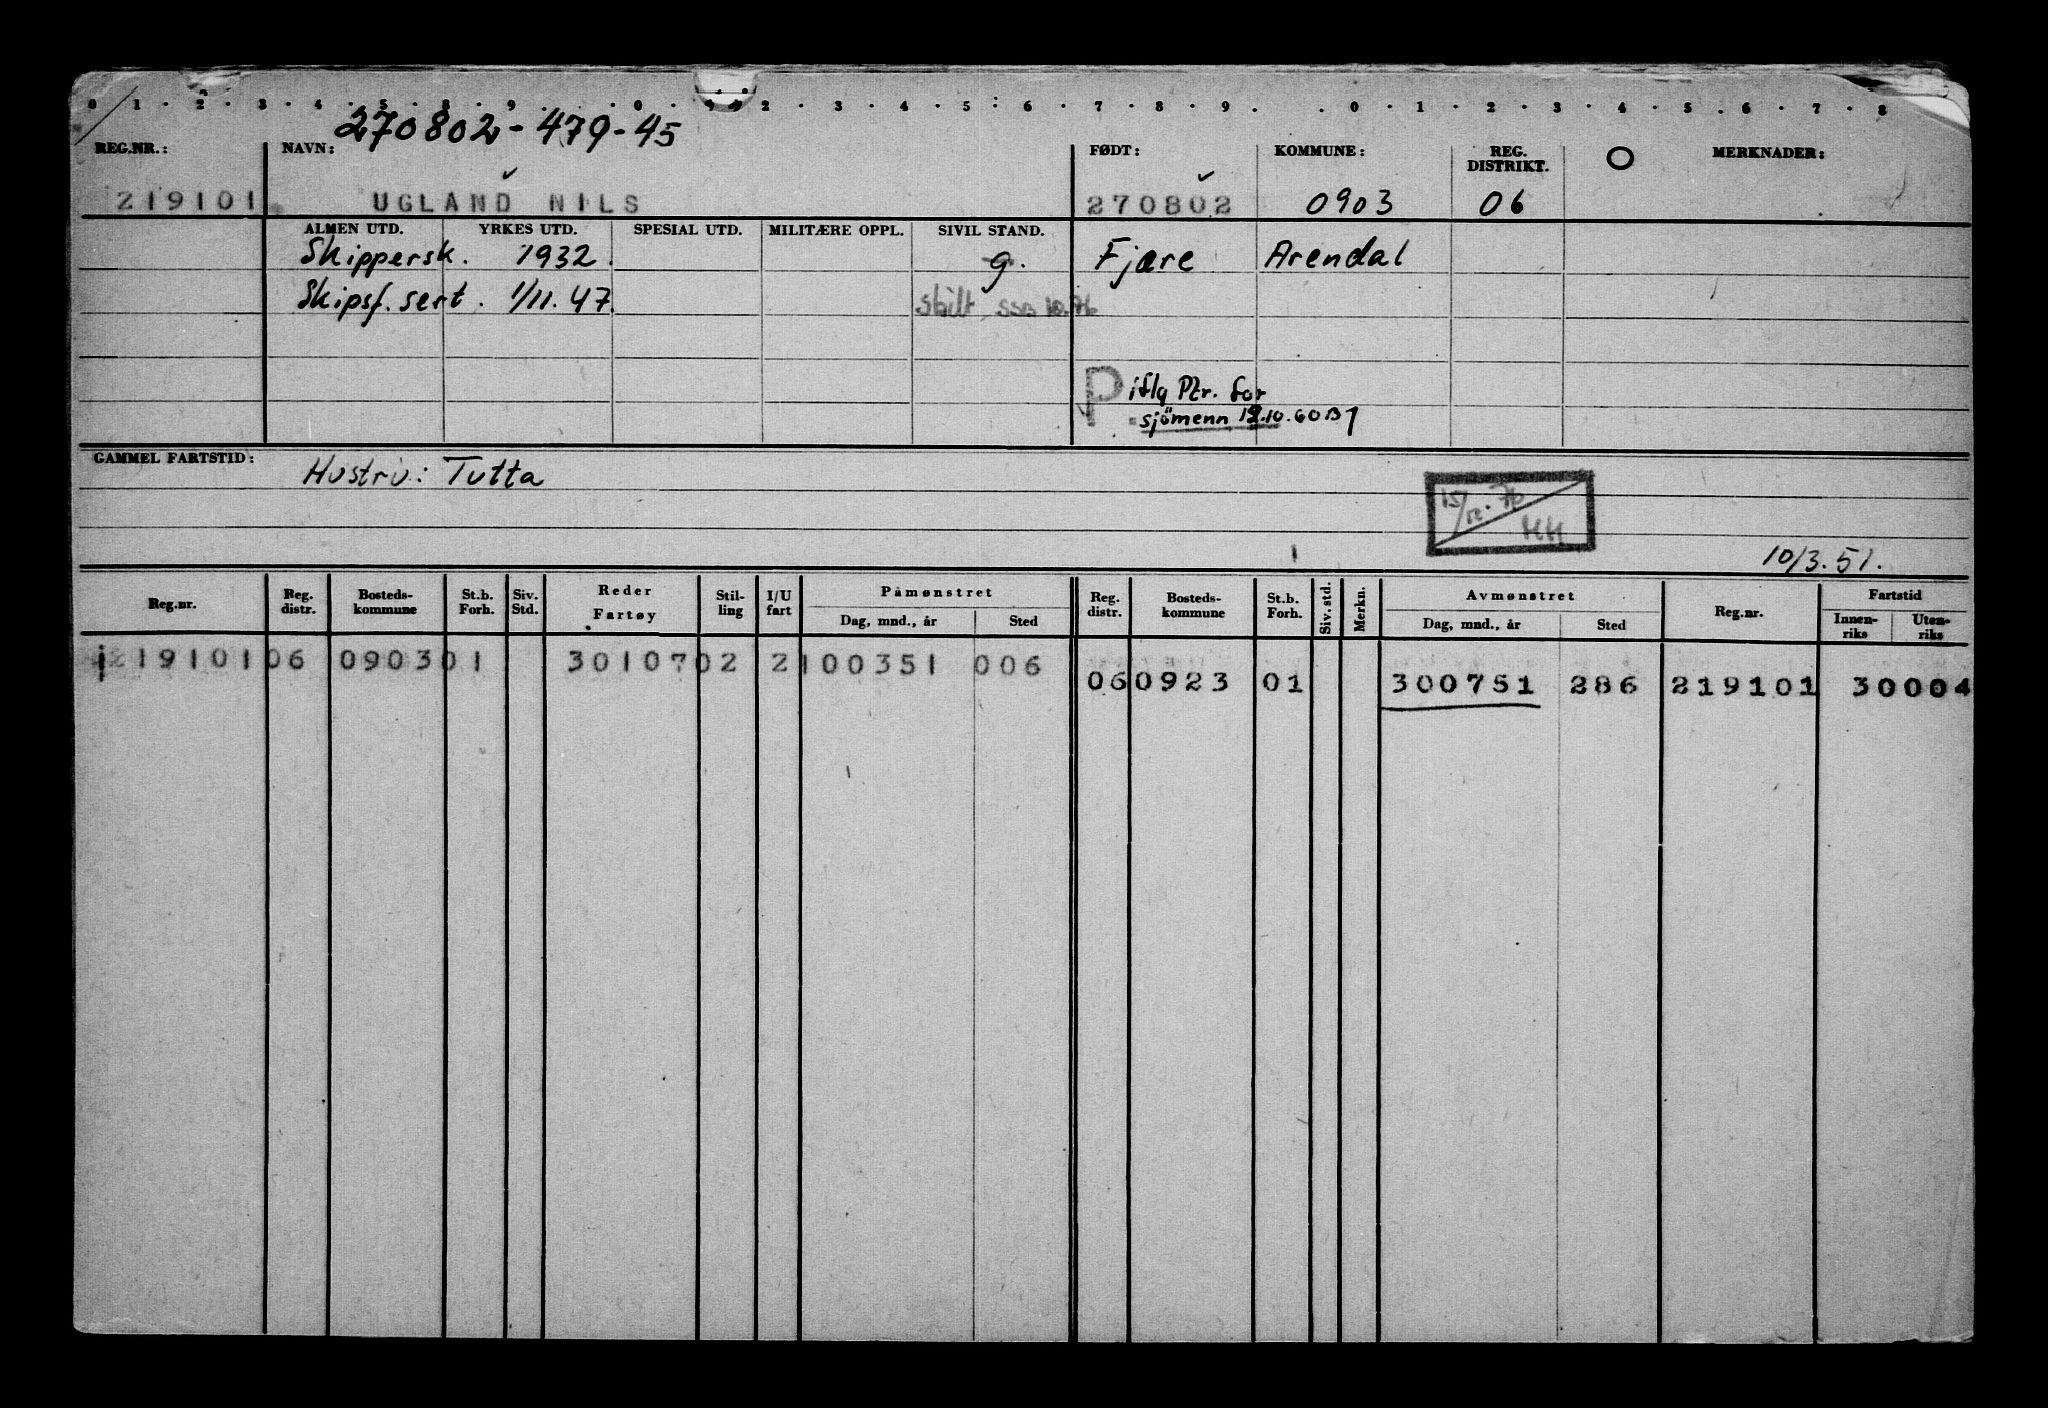 0 1 2 3 4 5 8 9 0 2 3 4 5 6 7 8 9 0 1 2 3 4 5 6 7 8
270802-479-45
REG.NR.: NAVN: FØDT: KOMMUNE: REG. DISTRIKT. O MERKNADER:
219101 UGLAND NILS 270802 0903 06
ALMEN UTD. YRKES UTD. SPESIAL UTD. MILITÆRE OPPL. SIVIL STAND.
Skippersk. 1932. g. Fjære Arendal
Skipsf. sert. 1/11.47.
P iflg Ptr. for
sjømenn 12.10.60
GAMMEL FARTSTID: Hustru: Tutta
15/12.76
HH
10/3.51.
Reg.nr. Reg. distr. Bosteds-kommune St.b. Forh. Siv. Std. Reder Fartøy Stil-ling I/U fart Påmønstret Dag, mnd., år Sted Reg. distr. Bosteds-kommune St.b. Forh. Siv. std. Merkn. Avmønstret Dag, mnd., år Sted Reg.nr. Fartstid Innen-riks Uten-riks
219101 06 0903 01 301070 2 2 100351 006
06 0923 01 300751 286 219101 30004